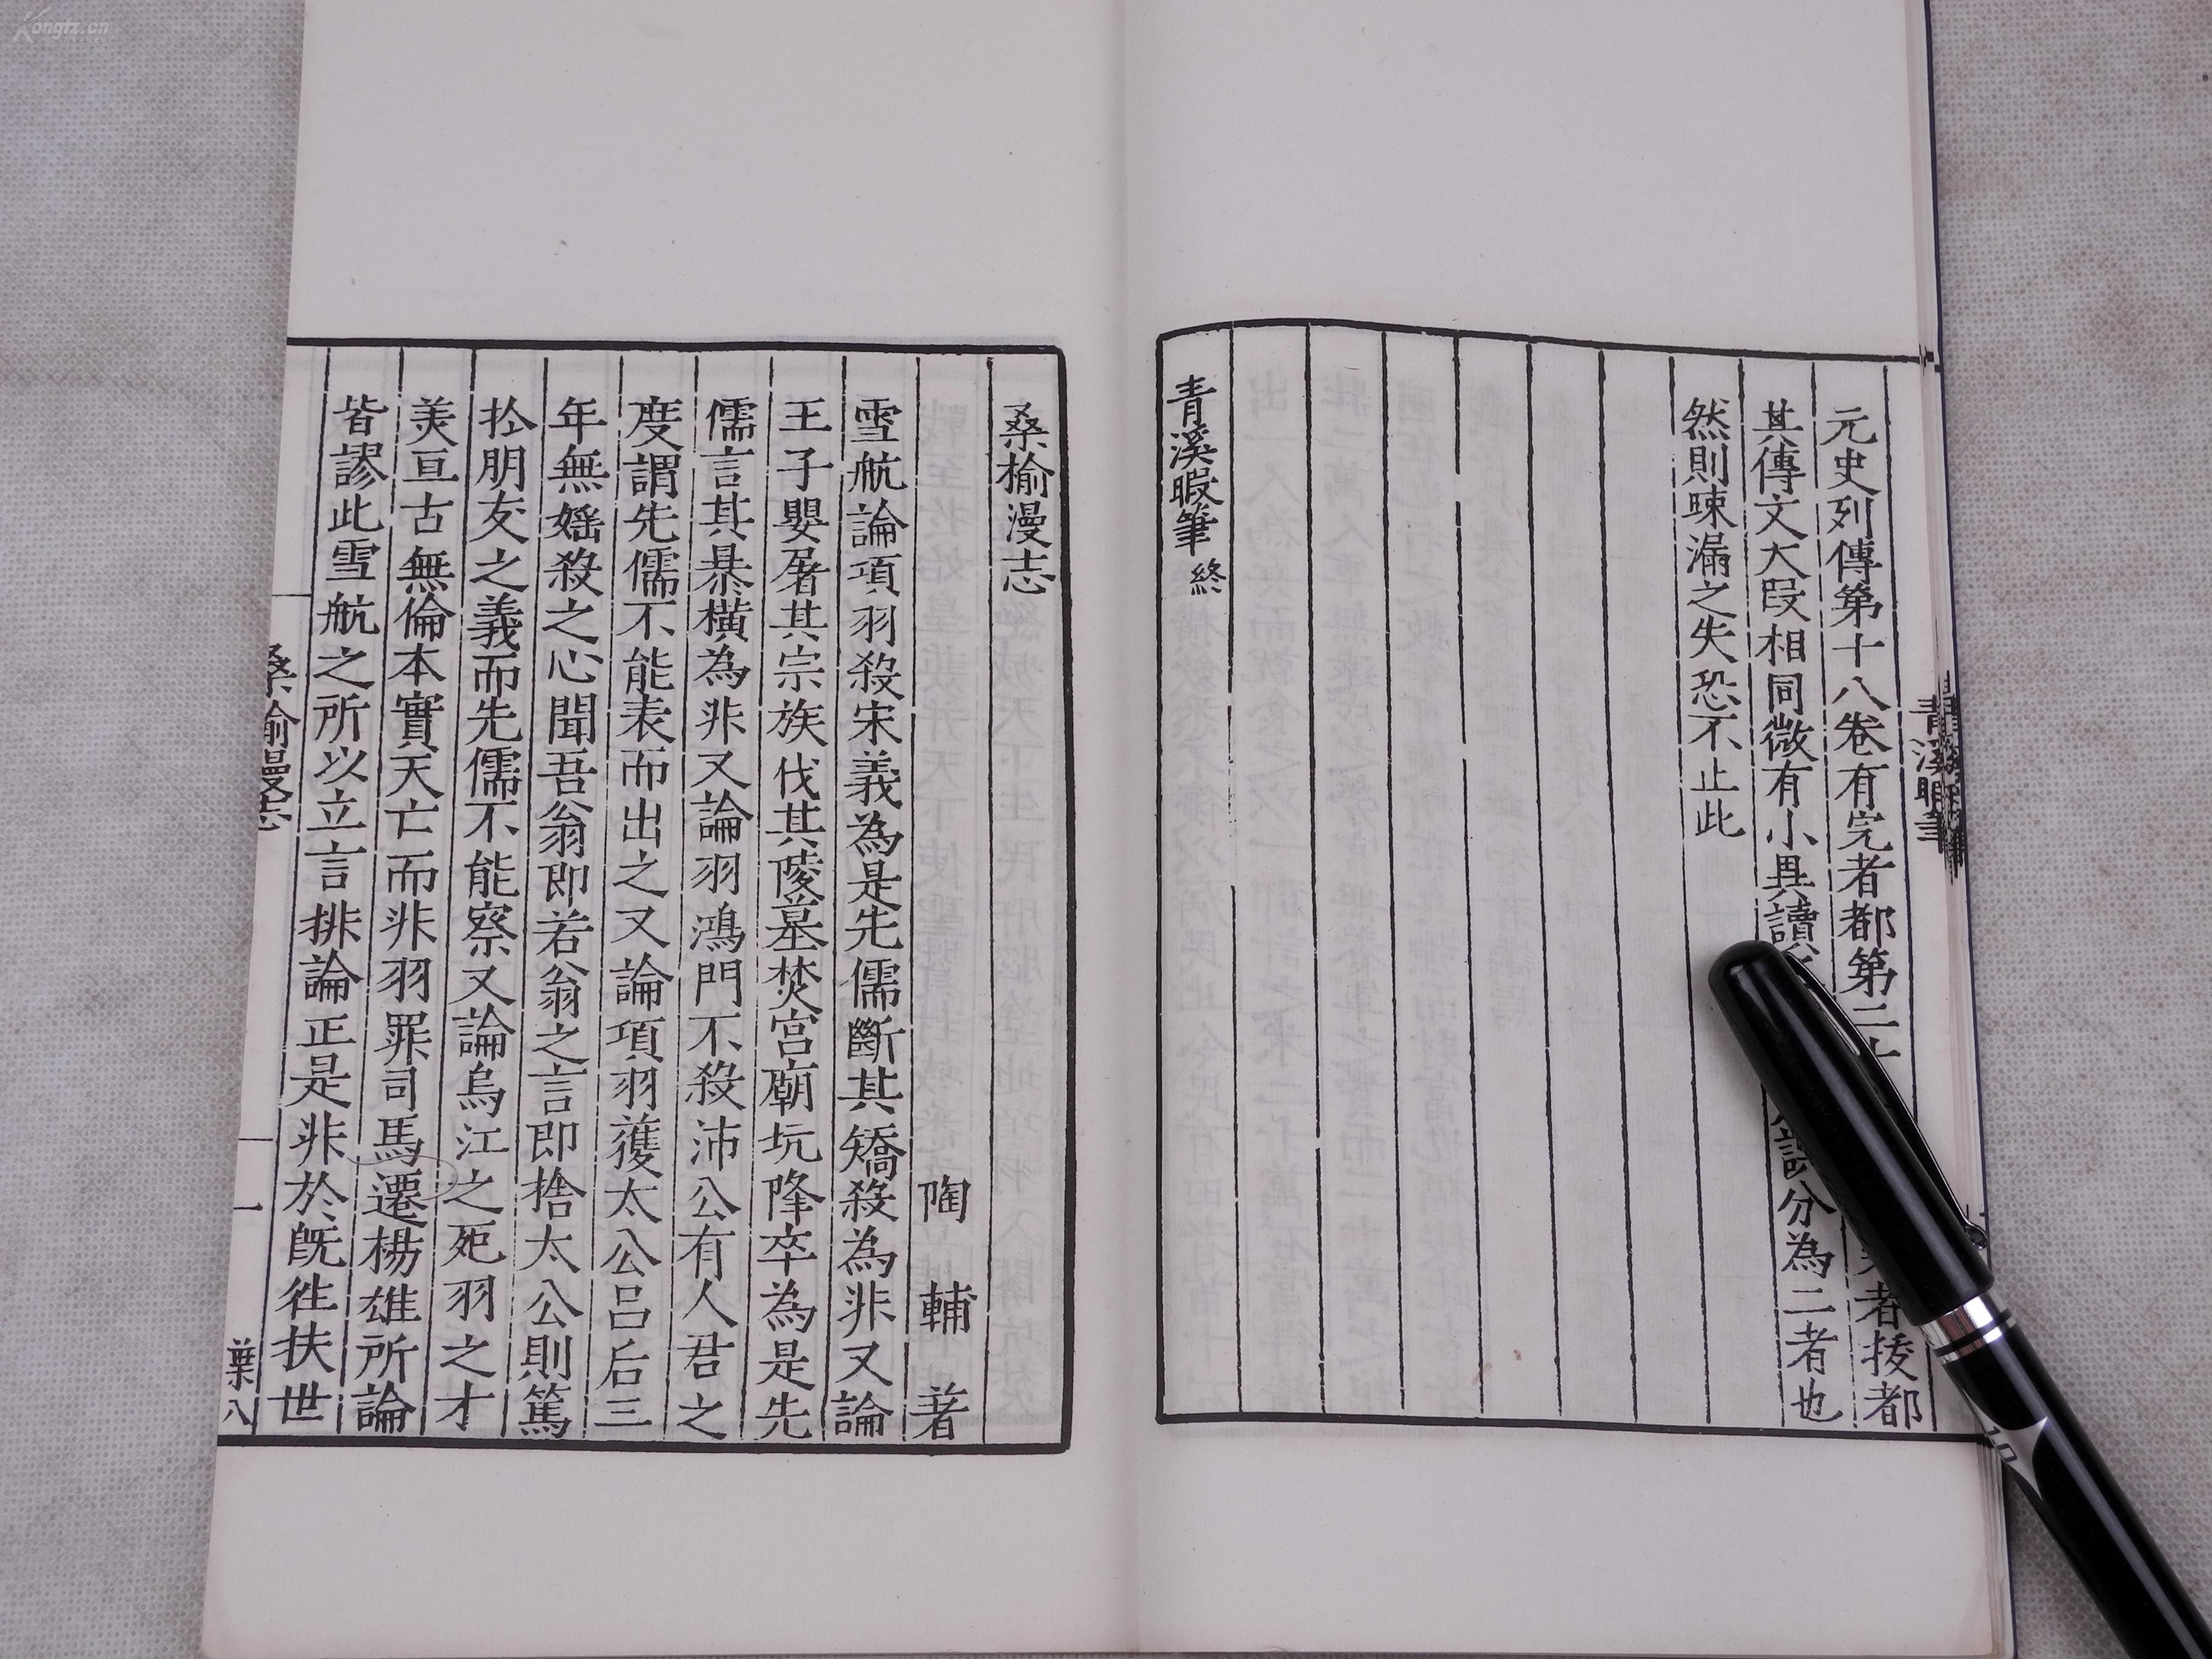 Kongfz.cn
元史列傳第十八卷有完者都第二十
者㧞都
其傳文大段相同微有小異讀
分為二者也
然則疎漏之失恐不止此
青溪暇筆 終
青溪暇筆
桑榆漫志
陶 輔 著
雪航論項羽殺宋義為是先儒斷其矯殺為非又論
王子嬰屠其宗族伐其陵墓焚宫廟坑降卒為是先
儒言其暴橫為非又論羽鴻門不殺沛公有人君之
度謂先儒不能表而出之又論項羽獲太公呂后三
年無婬殺之心聞吾翁即若翁之言即捨太公則篤
扵朋友之義而先儒不能察又論烏江之死羽之才
美亘古無倫本實天亡而非羽罪司馬遷楊雄所論
皆謬此雪航之所以立言排論正是非於旣往扶世
桑榆漫志
一
葉八